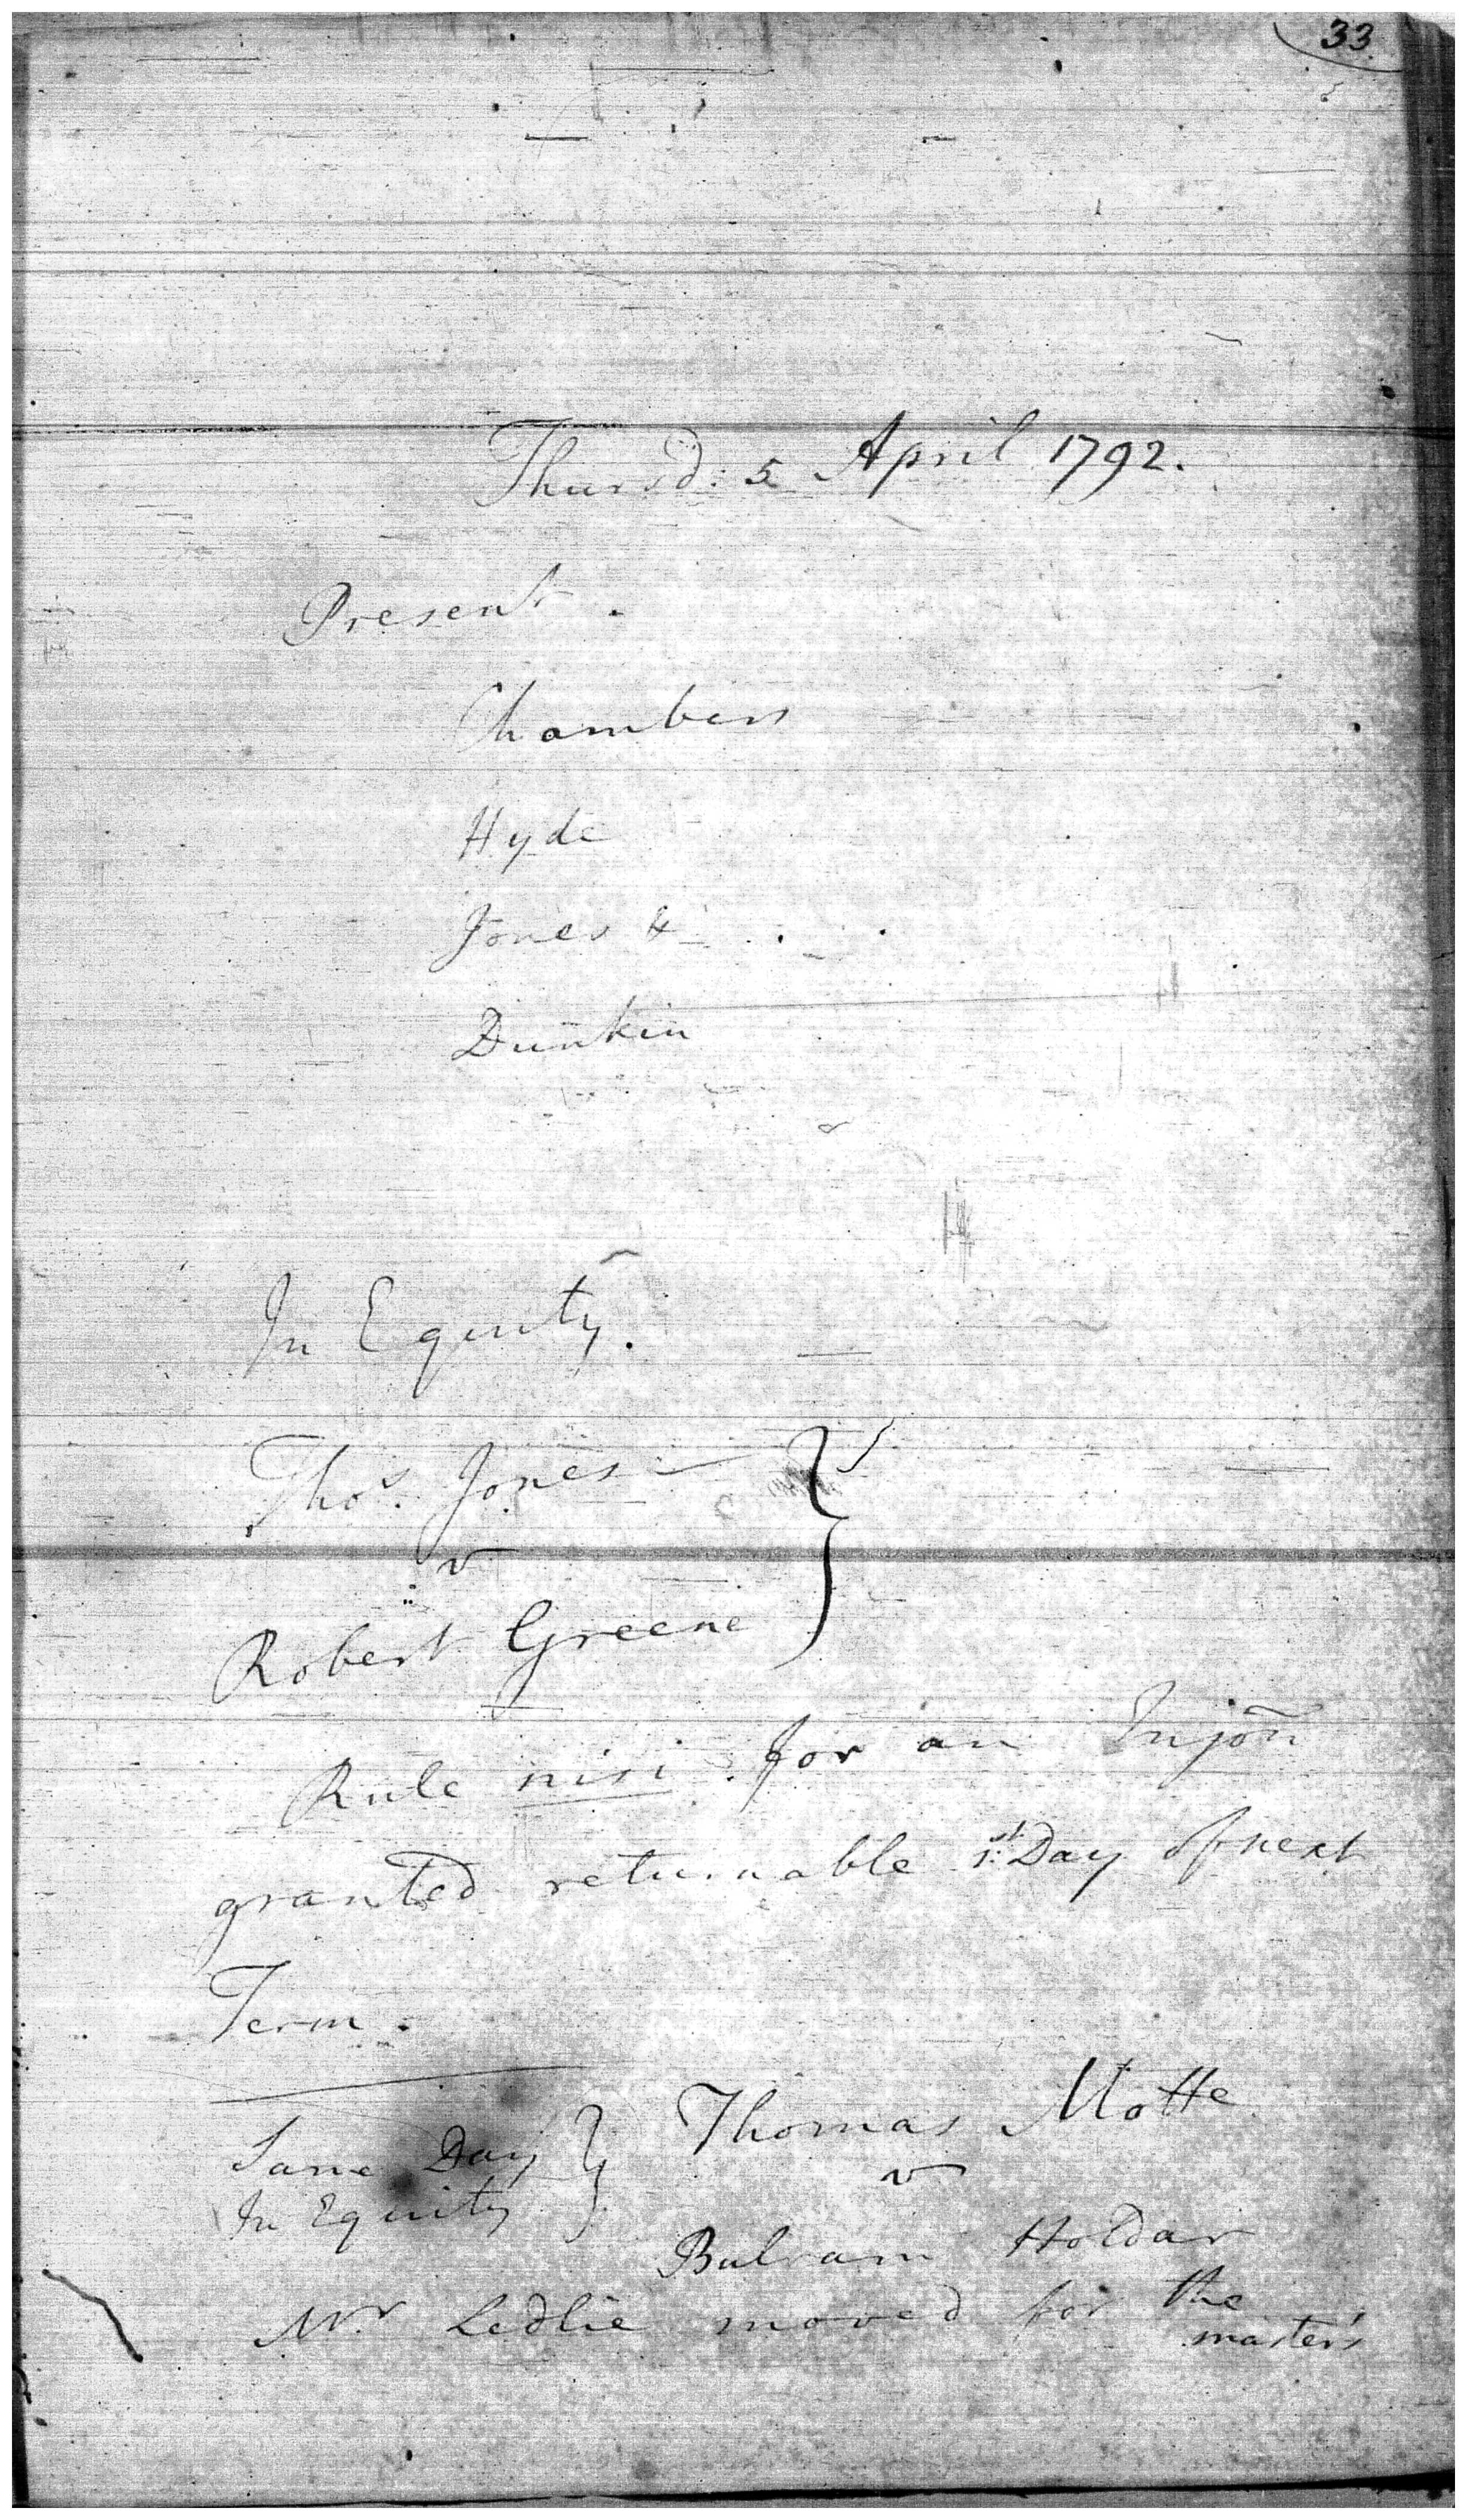 33
Thursd: 5 April 1792.
Present.
Chambers
Hyde
Jones &
Dunkin
In Equity.
Thos. Jones
v
Robert Greene
Rule nisi for an Injōn
granted returnable 1st Day of next
Term.
Same Day
In Equity
Thomas Motte
v
Bulram Holdar
Mr. Ledlie moved for the
master's